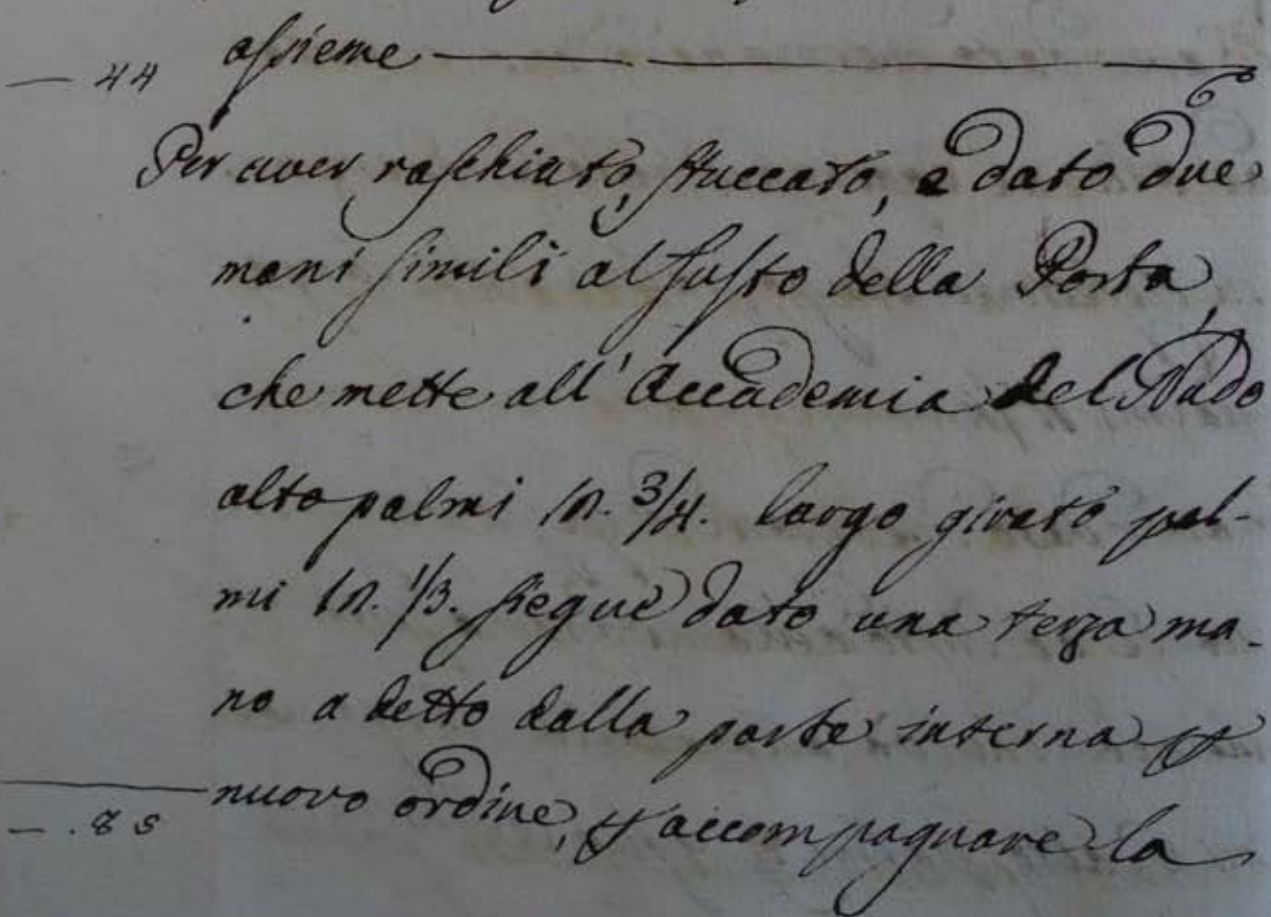 — 44 assieme
Per aver raschiato, stuccato, e dato due
mani simili al fusto della Porta,
che mette all'Accademia del Nudo
alto palmi 10. 3/4. largo girato pal-
mi 10. 1/3. siegue dato una terza ma-
no a detto dalla parte interna p
nuovo ordine, p accompagnare la
— .85